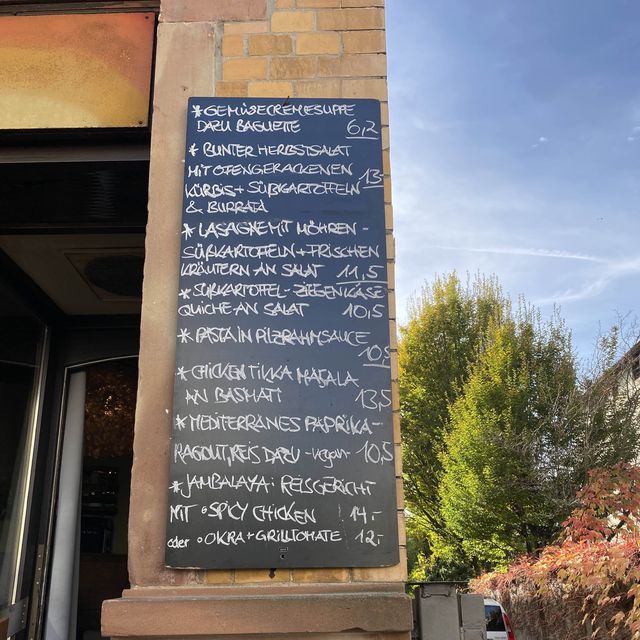 * GEMÜSECREMESUPPE
DAZU BAGUETTE 6,2
* BUNTER HERBSTSALAT
MIT OFENGEBACKENEN
KÜRBIS + SÜßKARTOFFELN 13,-
& BURRATA
* LASAGNE MIT MÖHREN -
SÜßKARTOFFELN + FRISCHEN
KRÄUTERN AN SALAT 11,5
* SÜßKARTOFFEL - ZIEGENKÄSE
QUICHE AN SALAT 10,5
* PASTA IN PILZRAHMSAUCE
10,5
* CHICKEN TIKKA MASALA
AN BASMATI 13,5
* MEDITERRANES PAPRIKA-
RAGOUT, REIS DAZU -vegan- 10,5
* JAMBALAYA: REISGERICHT
MIT • SPICY CHICKEN 14.-
oder • OKRA + GRILLTOMATE 12.-